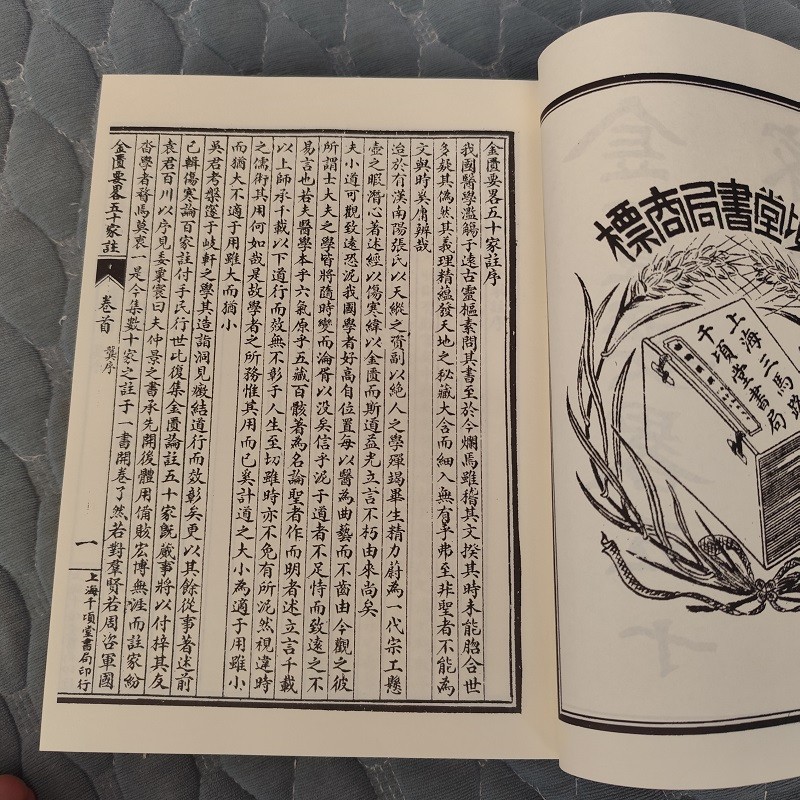 千頃堂書局商標
上海三馬路
千頃堂書局
金匱要畧五十家註序
我國醫學濫觴于遠古靈樞素問其書至於今爛焉雖稽其文揆其時未能脗合世
多疑其偽然其義理精蘊發天地之秘藏大含而細入無有乎弗至非聖者不能為
文與時奚庸辨哉
迨於有漢南陽張氏以天縱之資副以絕人之學殫竭畢生精力蔚為一代宗工懸
壺之暇潛心著述經以傷寒緯以金匱而斯道益光立言不朽由來尚矣
夫小道可觀致遠恐泥我國學者好高自位置每以醫為曲藝而不齒由今觀之彼
所謂士大夫之學皆將隨時變而淪胥以沒矣信乎泥于道者不足恃而致遠之不
易言也若夫醫學本乎六氣原乎五藏百骸著為名論聖者作而明者述立言千載
以上師承千載以下道行而效無不彰于人生至切雖時亦不免有所泥然視違時
之儒術其用何如哉是故學者之所務惟其用而已奚計道之大小為適于用雖小
而猶大不適于用雖大而猶小
吳君考槃邃于岐軒之學其造詣洞見癥結道行而效彰矣更以其餘從事著述前
已輯傷寒論百家註付手民行世比復集金匱論註五十家既蕆事將以付梓其友
袁君百川以序見委稟寰曰夫仲景之書承先開後體用備賅宏博無涯而註家紛
沓學者瞀焉莫衷一是今集數十家之註于一書開卷了然若對羣賢若周咨軍國
金匱要畧五十家註
卷首
龔序
一
上海千頃堂書局印行